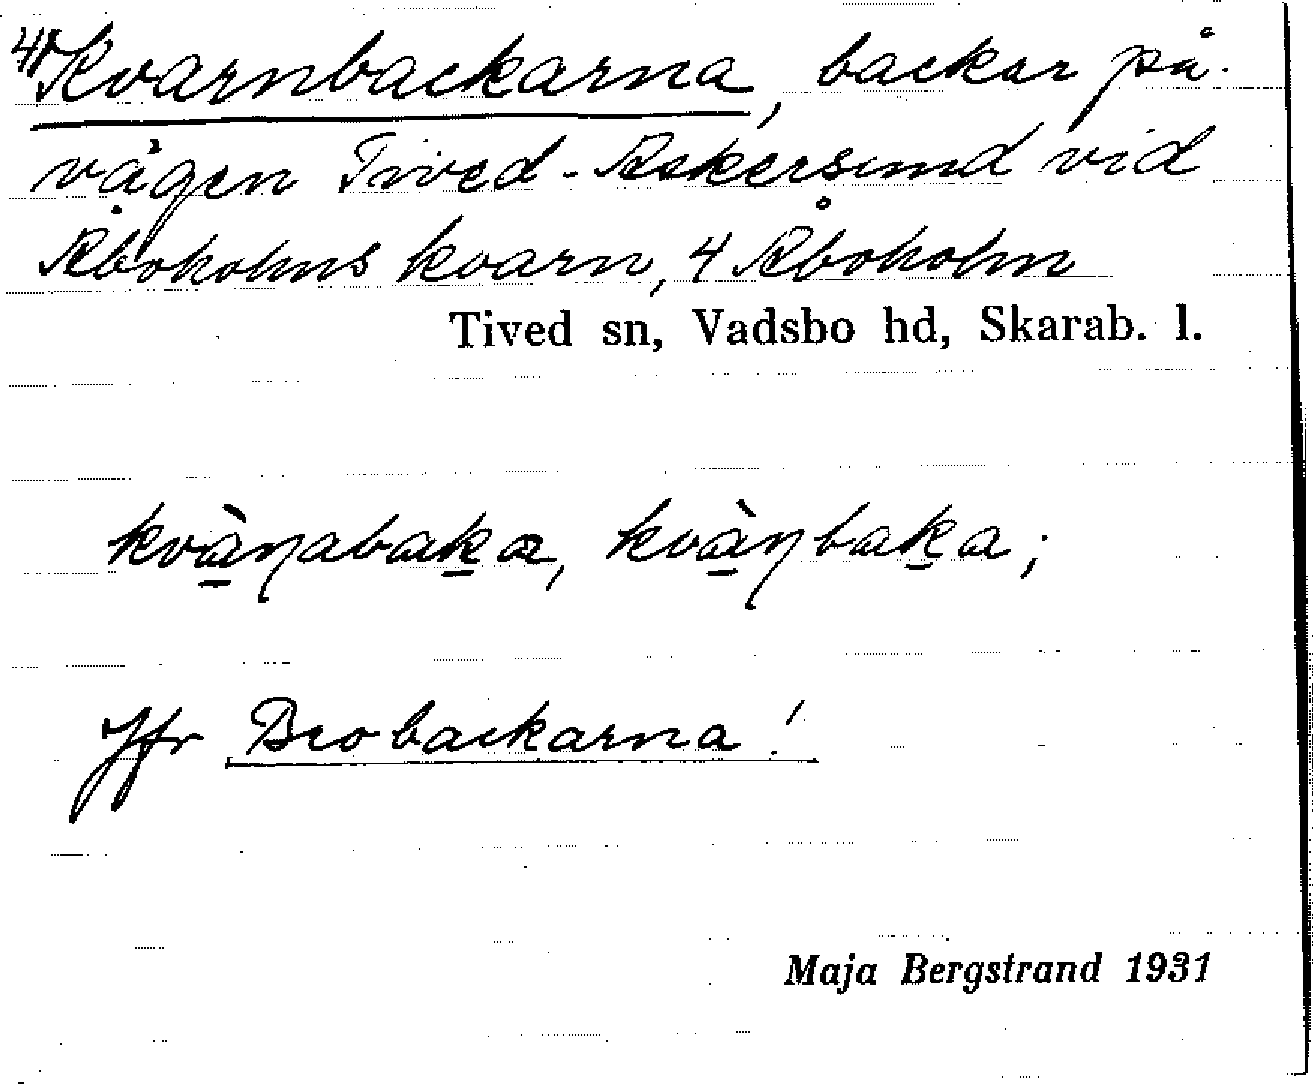 4) Kvarnbackarna, backar på
vägen Tived - Askersund vid
Åboholms kvarn, 4 Åboholm
Tived sn, Vadsbo hd, Skarab. l.
kvàɳabaka, kvàɳbaka;
Jfr Brobackarna!
Maja Bergstrand 1931